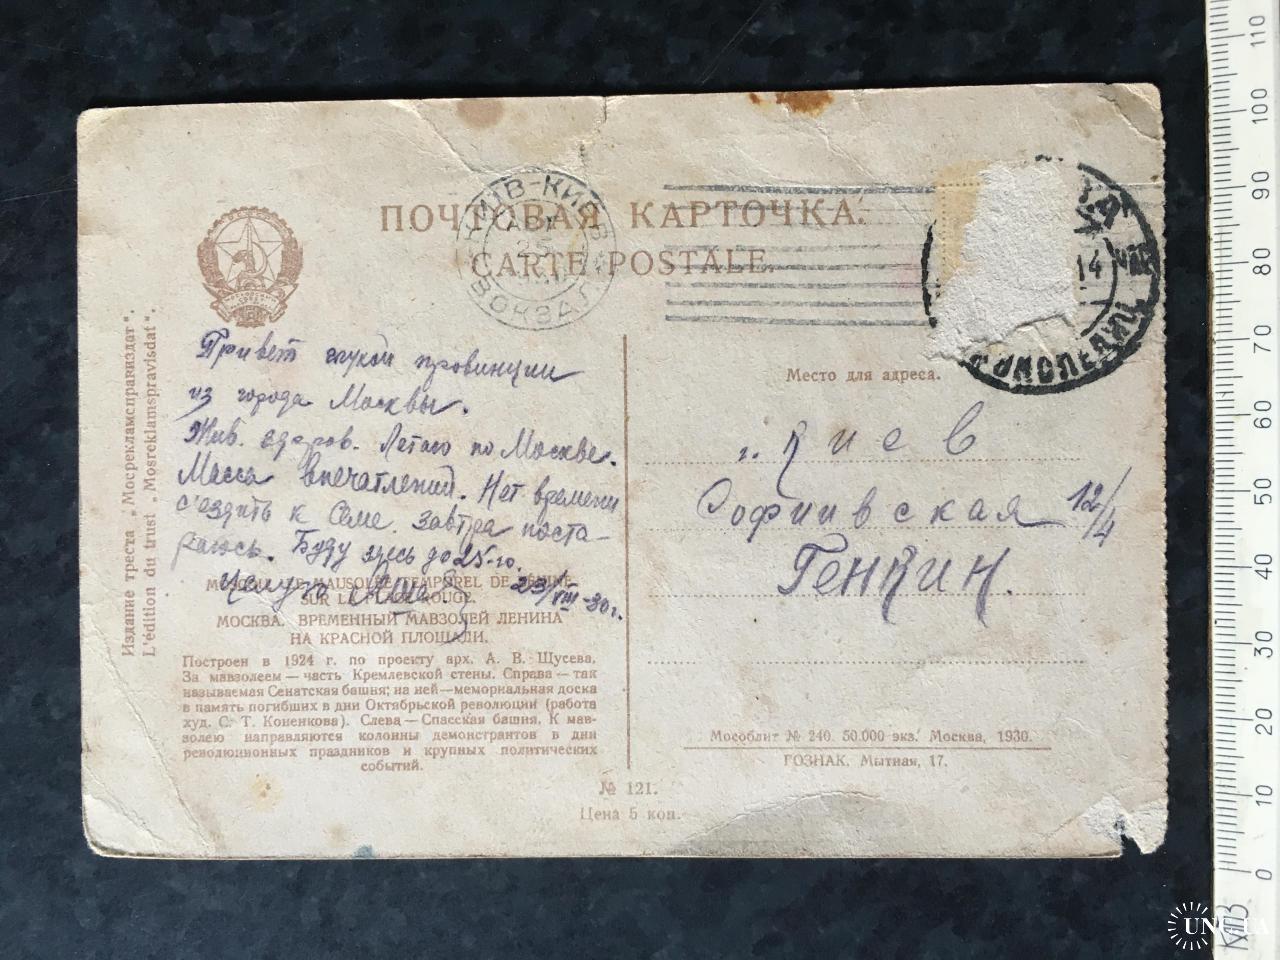 ПОЧТОВАЯ КАРТОЧКА.
CARTE POSTALE.
КИЇВ-КИЕВ
ВОКЗАЛ
14
Издание треста „Мосрекламсправиздат“.
L'édition du trust „Mosreklamspravisdat“.
Привет глухой провинции
из города Москвы.
Жив. здоров. Летаю по Москве.
Масса впечатлений. Нет времени
съездить к Семе. Завтра поста-
раюсь. Буду здесь до 25-го.
Целую
23/VIII-30г.
MOSCOU. LE MAUSOLÉE TEMPOREL DE LÉNINE
SUR LA PLACE ROUGE.
МОСКВА. ВРЕМЕННЫЙ МАВЗОЛЕЙ ЛЕНИНА
НА КРАСНОЙ ПЛОЩАДИ.
Построен в 1924 г. по проекту арх. А. В. Щусева.
За мавзолеем — часть Кремлевской стены. Справа — так
называемая Сенатская башня; на ней — мемориальная доска
в память погибших в дни Октябрьской революции (работа
худ. С. Т. Коненкова). Слева — Спасская башня. К мав-
золею направляются колонны демонстрантов в дни
революционных праздников и крупных политических
событий.
Место для адреса.
г. Киев
Софиивская 12/4
Генкин.
Мособлит № 240. 50.000 экз. Москва, 1930.
ГОЗНАК. Мытная, 17.
№ 121.
Цена 5 коп.
110
100
90
80
70
60
50
40
30
20
10
0
UNC.UA